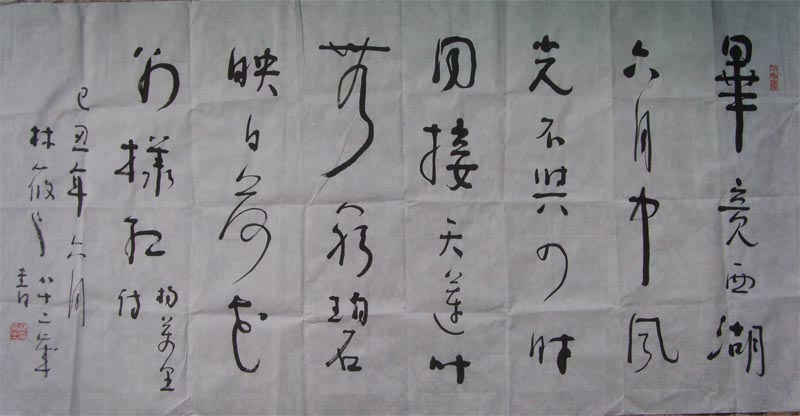 畢竟西湖
六月中風
光不與四时
同接天蓮叶
無窮碧
映日荷花
别樣红
楊萬里
詩
己丑年六月
林筱之 八十二歲